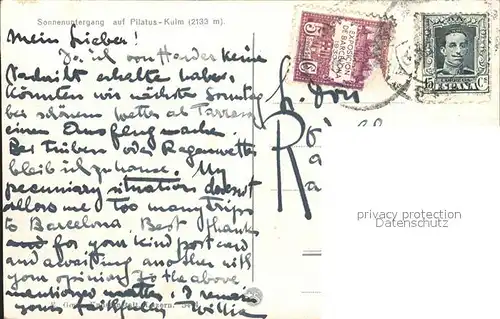 Sonnenuntergang auf Pilatus-Kulm (2133 m).
Mein Lieber!
Da ich von Harder keine
Nachricht erhalte haben,
könnten wir nächste Sonntag
bei schönem Wetter ab Tarrasa
einen Ausflug machen.
Bei trüben oder Regenwetter
bleib ich zuhause. My
pecuniary situation does not
allow me too many trips
to Barcelona. Best thanks
and for your kind postcard
and awaiting another with
your opinion to the above
mentioned matter, I remain
yours faithfully Willie
EXPOSICION
DE BARCELONA
5 Cs
15 Cs
ESPAÑA
Don
privacy protection
Datenschutz